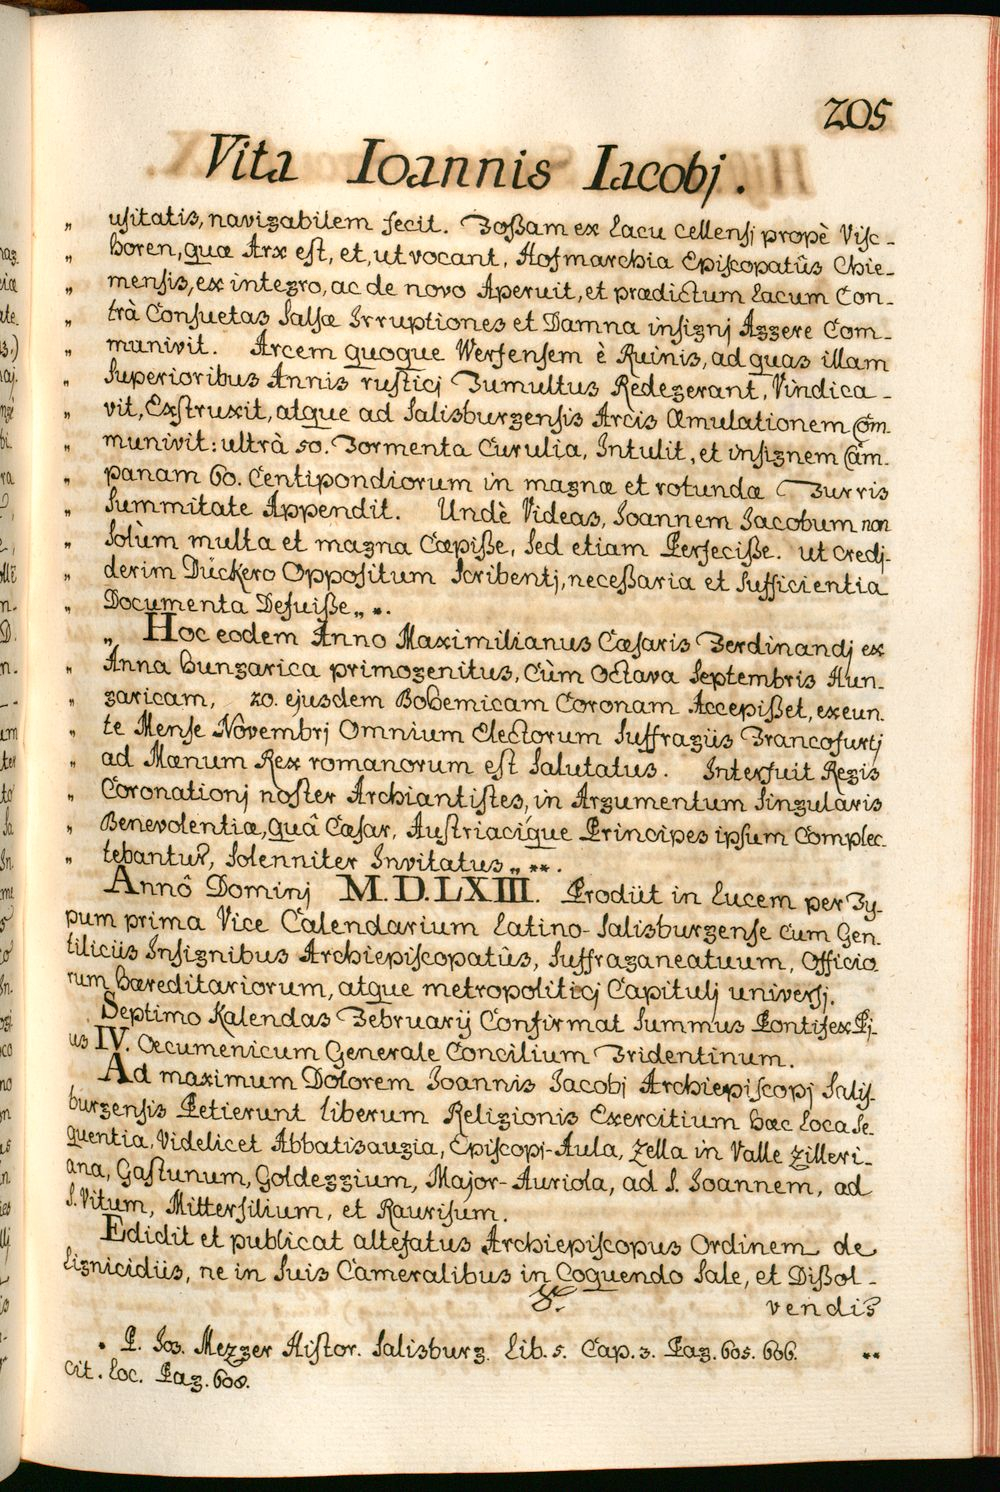 205
Vita Ioannis Iacobj.
„ usitatis, navigabilem fecit. Foßam ex Lacu Cellensj propè Visc-
„ horen, quæ Arx est, et, ut vocant, Hofmarchia Episcopatûs Chie-
„ mensis, ex integro, ac de novo Aperuit, et prædictum Lacum Con-
„ trà Consuetas Salsæ Irruptiones et Damna insignj Aggere Com-
„ munivit. Arcem quoque Werfensem è Ruinis, ad quas illam
„ Superioribus Annis rusticj Tumultus Redegerant, Vindica-
„ vit, Exstruxit, atque ad Salisburgensis Arcis Æmulationem Com-
„ munivit: ultrà 50. Tormenta Curulia, Intulit, et insignem Cam-
„ panam 60. Centipondiorum in magnæ et rotundæ Turris
„ Summitate Appendit. Undè Videas, Joannem Jacobum non
„ Solùm multa et magna Cæpiße, Sed etiam Perfeciße. ut credj-
„ derim Dückero Oppositum Scribentj, neceßaria et Sufficientia
„ Documenta Defuiße„ *.
„ Hoc eodem Anno Maximilianus Cæsaris Ferdinandj ex
„ Anna hungarica primogenitus, Cùm Octava Septembris Hun-
„ garicam, 20. ejusdem Bohemicam Coronam Accepißet, exeun-
„ te Mense Novembrj Omnium Electorum Suffragiis Francofurtj
„ ad Mœnum Rex romanorum est Salutatus. Interfuit Regis
„ Coronationj noster Archiantistes, in Argumentum Singularis
„ Benevolentiæ, quâ Cæsar, Austriacique Principes ipsum Complec-
„ tebantur, Solenniter Invitatus„ **.
Annô Dominj M.D.LXIII. Prodiit in Lucem per Ty-
pum prima Vice Calendarium Latino-Salisburgense cum Gen-
tiliciis Insignibus Archiepiscopatûs, Suffraganeatuum, Officio
rum hæreditariorum, atque metropoliticj Capitulj universj.
Septimo Kalendas Februarij Confirmat Summus Pontifex Pj-
us IV. Œcumenicum Generale Concilium Tridentinum.
Ad maximum Dolorem Joannis Jacobj Archiepiscopj Salis-
burgensis Petierunt liberum Religionis Exercitium hæc Loca Se-
quentia, Videlicet Abbatisaugia, Episcopj-Aula, Zella in Valle Zilleri-
ana, Gastunum, Goldeggium, Major-Auriola, ad S. Joannem, ad
S. Vitum, Mittersilium, et Raurisum.
Edidit et publicat altefatus Archiepiscopus Ordinem de
Lignicidiis, ne in Suis Cameralibus in Coquendo Sale, et Dißol-
vendis
* P. Jos. Mezger Histor. Salisburg. Lib. 5. Cap. 3. Pag. 605. 606. **
Cit. Loc. Pag. 608.